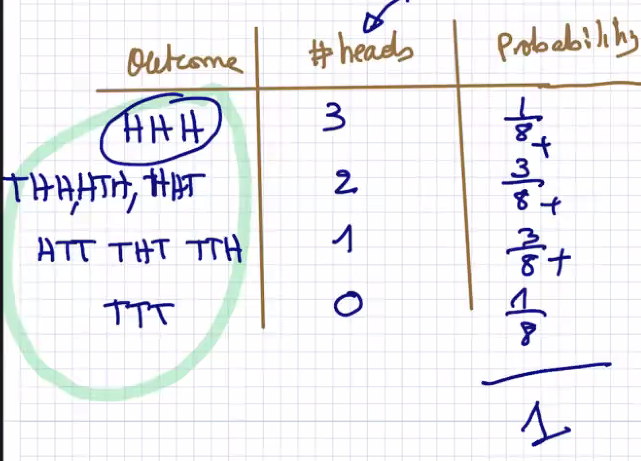 Outcome #heads Probability
HHH 3 1/8 +
THH, HTH, HHT 2 3/8 +
HTT THT TTH 1 3/8 +
TTT 0 1/8
1